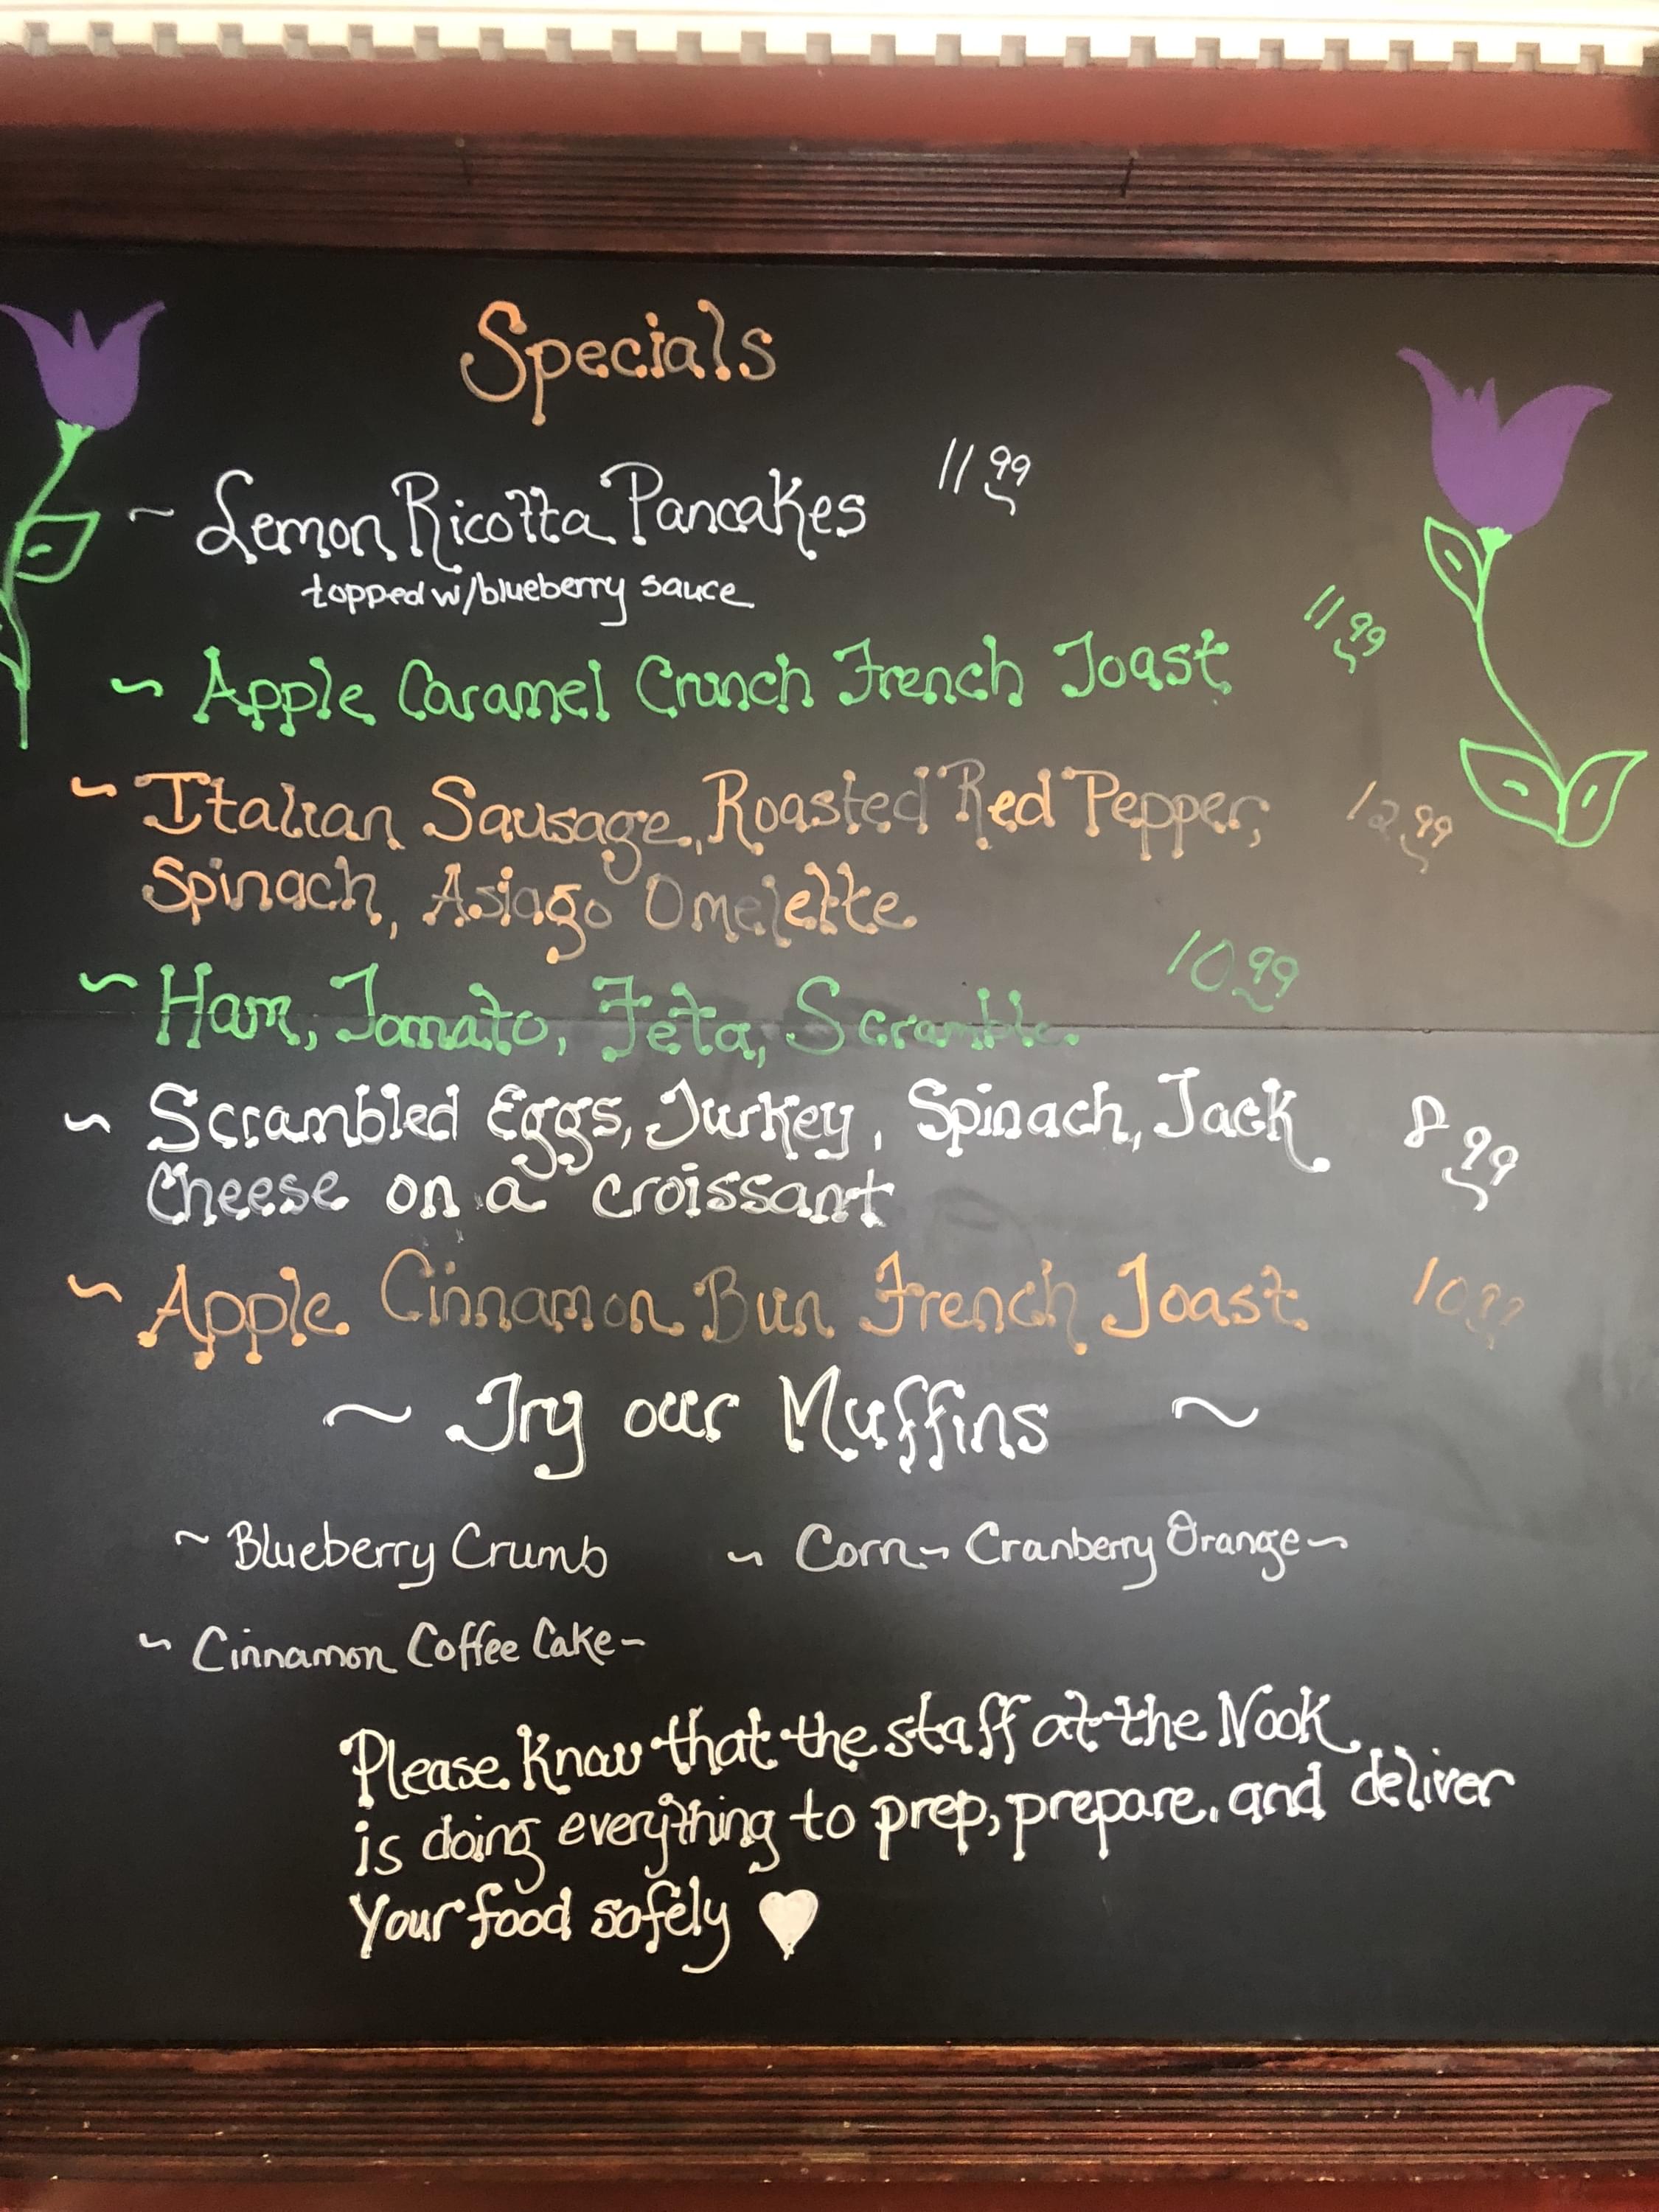 Specials
~ Lemon Ricotta Pancakes 11.99
topped w/blueberry sauce
~ Apple Caramel Crunch French Toast 11.99
~ Italian Sausage, Roasted Red Pepper, 12.99
Spinach, Asiago Omelette
~ Ham, Tomato, Feta, Scramble 10.99
~ Scrambled Eggs, Turkey, Spinach, Jack 8.99
Cheese on a croissant
~ Apple Cinnamon Bun French Toast 10.99
~ Try our Muffins ~
~ Blueberry Crumb ~ Corn ~ Cranberry Orange ~
~ Cinnamon Coffee Cake ~
Please Know that the staff at the Nook
is doing everything to prep, prepare, and deliver
Your food safely ♥